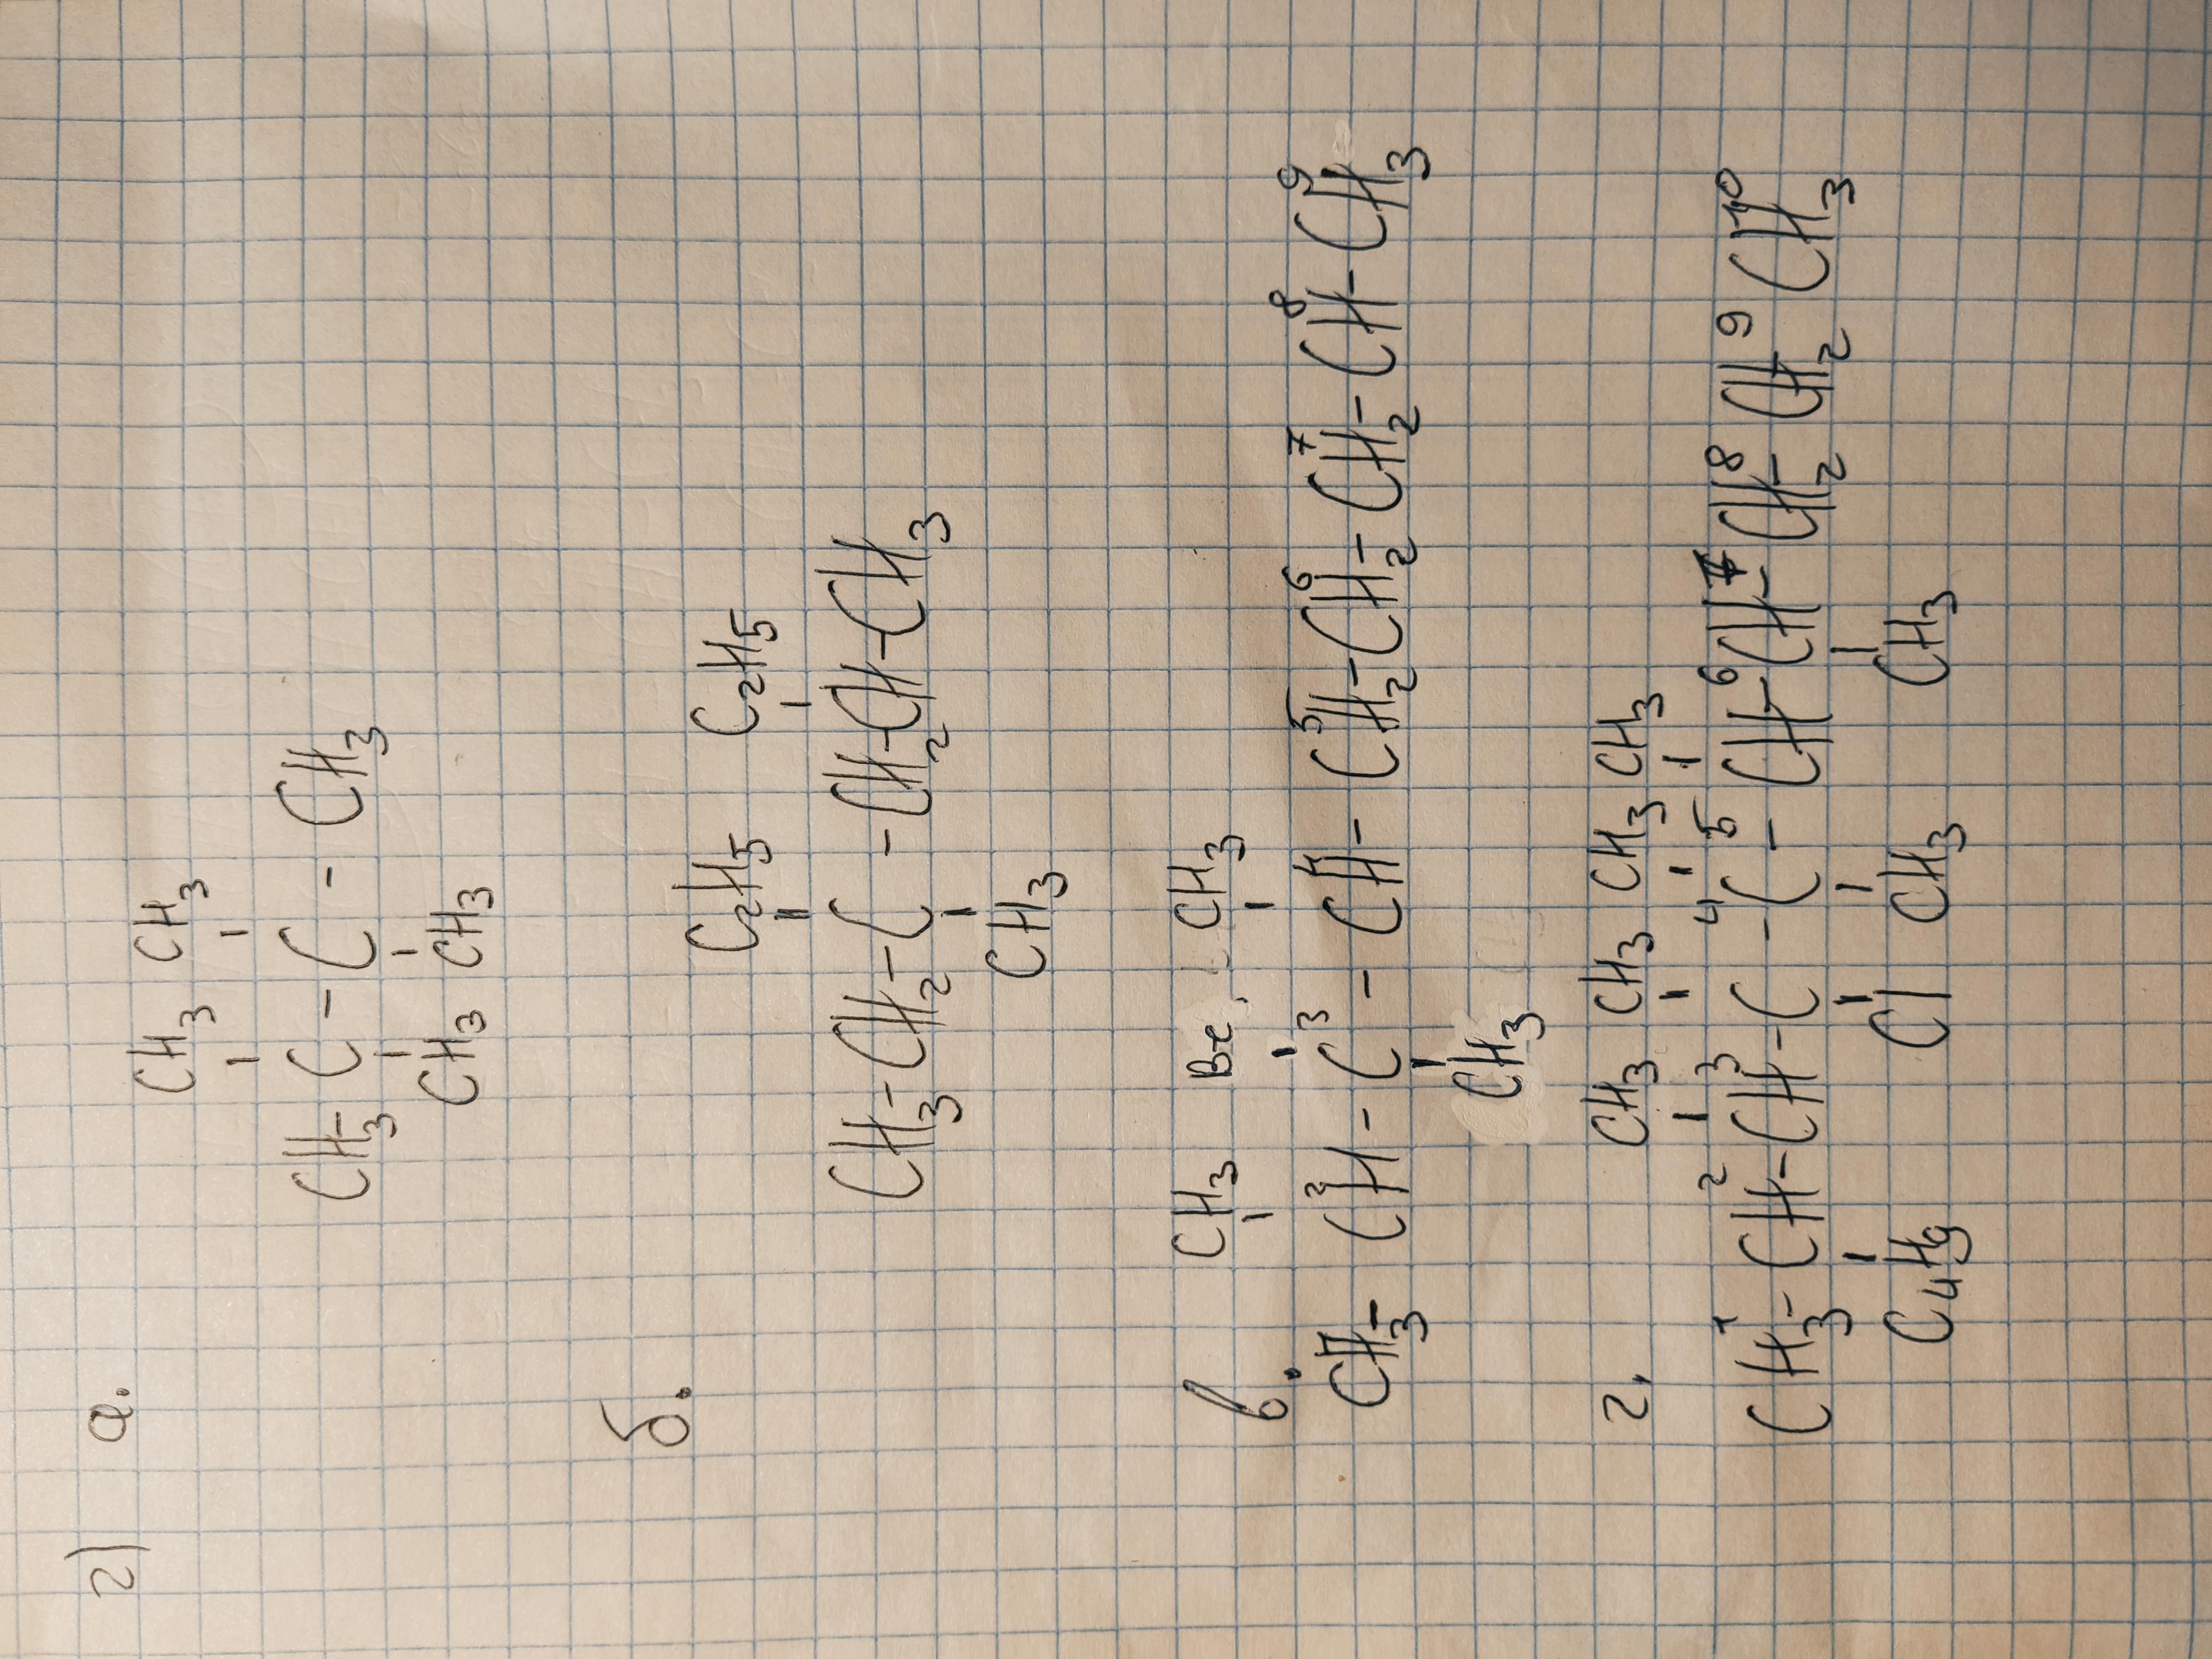 2) а.
CH3 CH3
CH3-C-C-CH3
CH3 CH3
б.
C2H5 C2H5
CH3-CH2-C-CH2-CH-CH3
CH3
в.
CH3 Br CH3
3 4 5 6 7 8 9
CH3-CH-C-CH-CH2-CH2-CH2-CH-CH3
CH3
г.
CH3 CH3 CH3 CH3
1 2 3 4 5 6 7 8 9 10
CH3-CH-CH-C-C-CH-CH-CH2-CH2 CH3
C4H9 Cl CH3 CH3